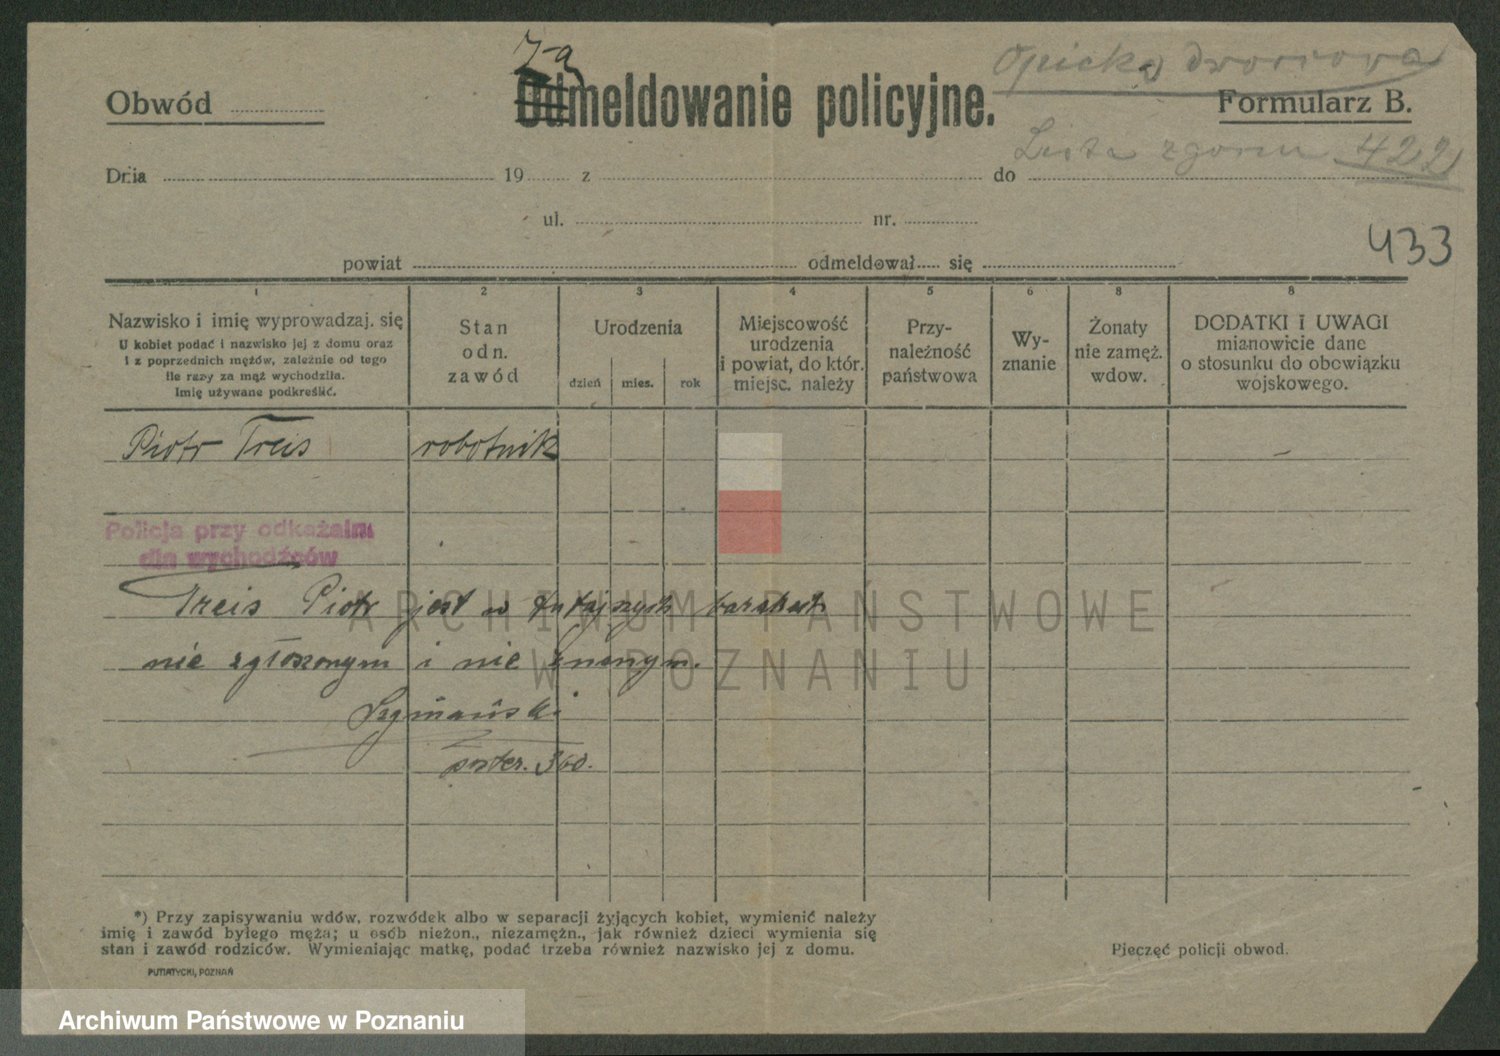 Za
Opieka dworcowa
Obwód
Odmeldowanie policyjne.
Formularz B.
Lista zgorn 422
Dnia 19 z do
ul. nr.
433
powiat odmeldował się
1 2 3 4 5 6 8 8
Nazwisko i imię wyprowadzaj. się
U kobiet podać i nazwisko jej z domu oraz
i z poprzednich mężów, zależnie od tego
ile razy za mąż wychodziła.
Imię używane podkreślić.
Stan
odn.
zawód
Urodzenia
dzień mies. rok
Miejscowość
urodzenia
i powiat, do któr.
miejsc. należy
Przy-
należność
państwowa
Wy-
znanie
Żonaty
nie zamęż.
wdow.
DODATKI i UWAGI
mianowicie dane
o stosunku do obowiązku
wojskowego.
Piotr Treis robotnik
Policja przy odkażalni
dla wychodźców
Treis Piotr jest w tutejszych barakach
nie zgłoszonym i nie znanym.
Szymański
poster. 360.
ARCHIWUM PAŃSTWOWE
W POZNANIU
*) Przy zapisywaniu wdów, rozwódek albo w separacji żyjących kobiet, wymienić należy
imię i zawód byłego męża; u osób nieżon., niezamężn., jak również dzieci wymienia się
stan i zawód rodziców. Wymieniając matkę, podać trzeba również nazwisko jej z domu.
Pieczęć policji obwod.
PUTIATYCKI, POZNAŃ
Archiwum Państwowe w Poznaniu